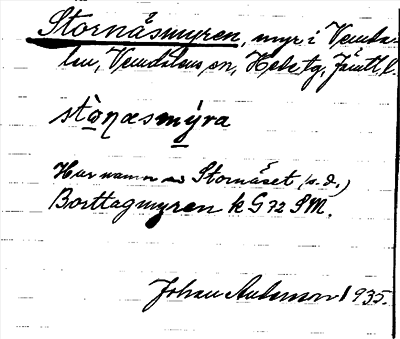 Stornåsmyren, myr i Vemda-
len, Vemdalens sn, Hede tg, Jämtl. l.
stò̱ꞃasmýra
Har namn av Stornåset (s.d.)
Borttagmyren k G 72 SM.
Johan Anderson 1935.